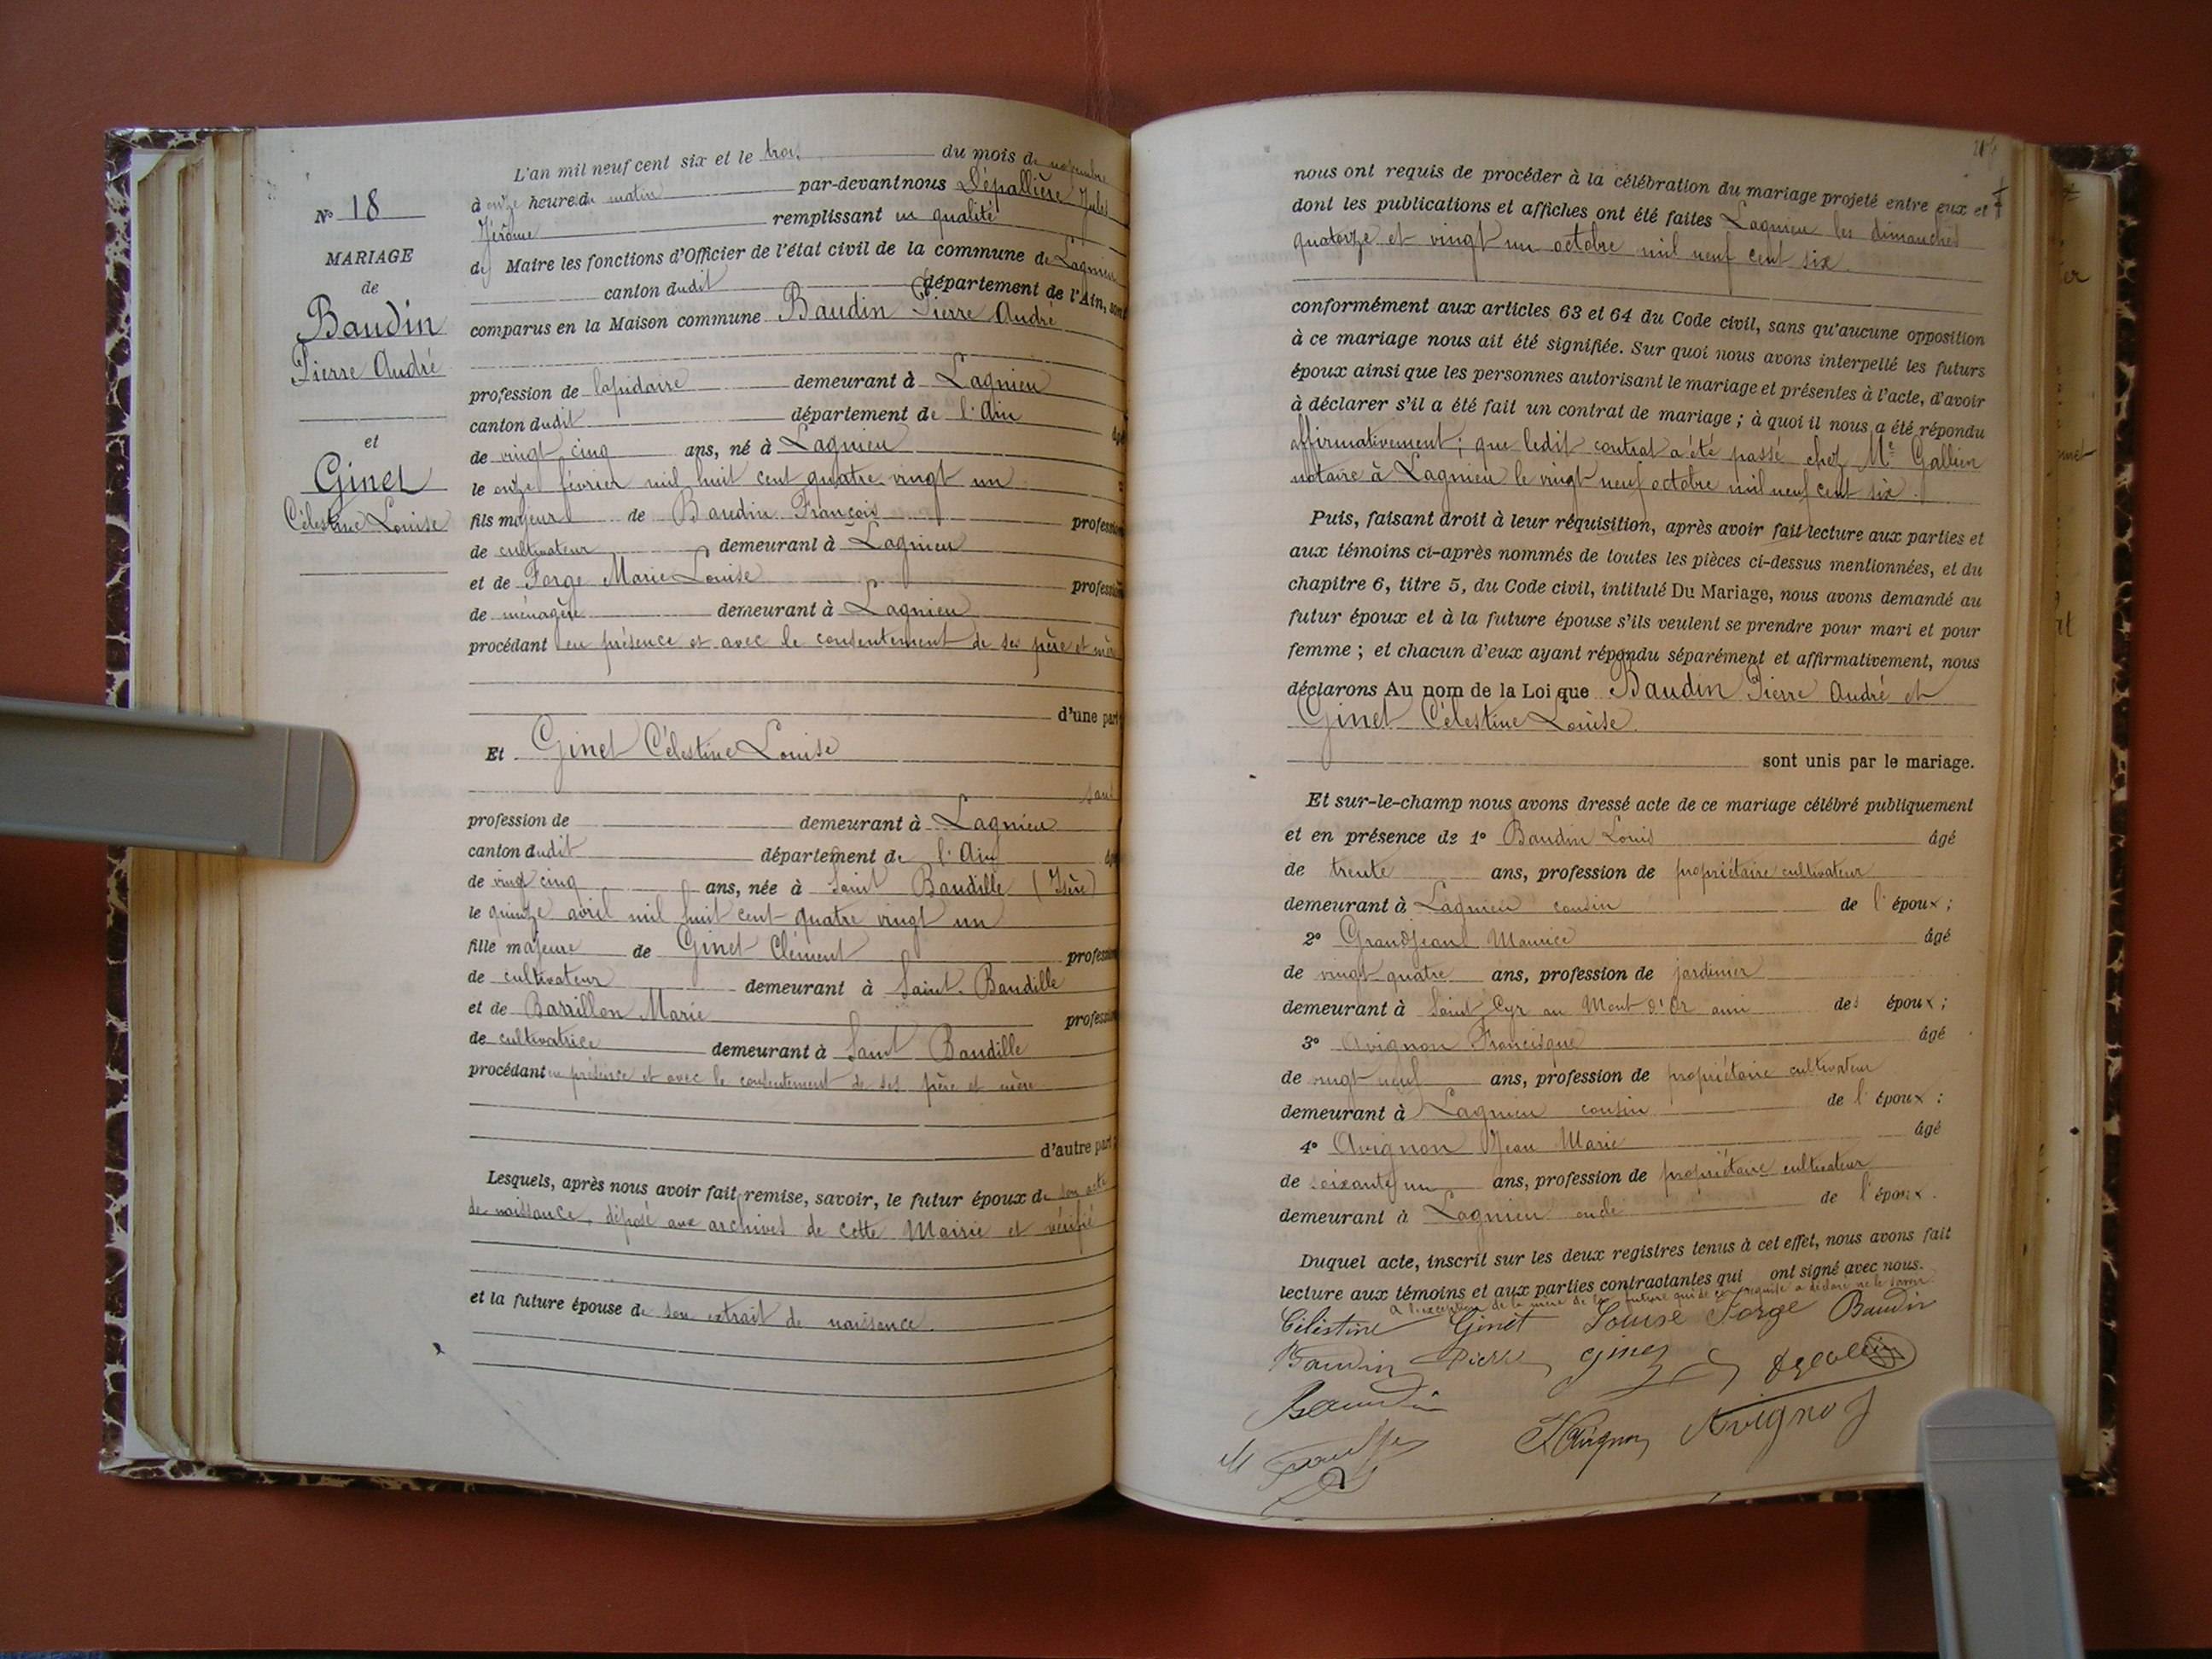 N° 18
MARIAGE
de
Baudin
Pierre André
et
Ginet
Célestine Louise
L'an mil neuf cent six et le trois du mois de novembre
à onze heures du matin par-devant nous Dépallière Jules
Jérôme remplissant en qualité
de Maire les fonctions d'Officier de l'état civil de la commune de Lagnieu
canton dudit département de l'Ain, sont
comparus en la Maison commune Baudin Pierre André
profession de lapidaire demeurant à Lagnieu
canton dudit département de l'Ain âgé
de vingt cinq ans, né à Lagnieu
le onze février mil huit cent quatre vingt un
fils majeur de Baudin François profession
de cultivateur demeurant à Lagnieu
et de Forge Marie Louise profession
de ménagère demeurant à Lagnieu
procédant en présence et avec le consentement de ses père et mère
d'une part
Et Ginet Célestine Louise
sans
profession de demeurant à Lagnieu
canton dudit département de l'Ain
de vingt cinq ans, née à Saint Baudille (Isère)
le quinze avril mil huit cent quatre vingt un
fille majeure de Ginet Clément profession
de cultivateur demeurant à Saint-Baudille
et de Barrillon Marie profession
de cultivatrice demeurant à Saint Baudille
procédant en présence et avec le consentement de ses père et mère
d'autre part
Lesquels, après nous avoir fait remise, savoir, le futur époux de son acte
de naissance, déposé aux archives de cette Mairie et vérifié
et la future épouse de son extrait de naissance.
nous ont requis de procéder à la célébration du mariage projeté entre eux et
dont les publications et affiches ont été faites Lagnieu les dimanches
quatorze et vingt un octobre mil neuf cent six.
conformément aux articles 63 et 64 du Code civil, sans qu'aucune opposition
à ce mariage nous ait été signifiée. Sur quoi nous avons interpellé les futurs
époux ainsi que les personnes autorisant le mariage et présentes à l'acte, d'avoir
à déclarer s'il a été fait un contrat de mariage ; à quoi il nous a été répondu
affirmativement ; que ledit contrat a été passé chez Me Gallien
notaire à Lagnieu le vingt neuf octobre mil neuf cent six.
Puis, faisant droit à leur réquisition, après avoir fait lecture aux parties et
aux témoins ci-après nommés de toutes les pièces ci-dessus mentionnées, et du
chapitre 6, titre 5, du Code civil, intitulé Du Mariage, nous avons demandé au
futur époux et à la future épouse s'ils veulent se prendre pour mari et pour
femme ; et chacun d'eux ayant répondu séparément et affirmativement, nous
déclarons Au nom de la Loi que Baudin Pierre André et
Ginet Célestine Louise
sont unis par le mariage.
Et sur-le-champ nous avons dressé acte de ce mariage célébré publiquement
et en présence de 1° Baudin Louis âgé
de trente ans, profession de propriétaire cultivateur
demeurant à Lagnieu cousin de l'époux ;
2° Grandjean Maurice âgé
de vingt quatre ans, profession de jardinier
demeurant à Saint Cyr au Mont d'Or ami des époux ;
3° Avignon Francisque âgé
de vingt neuf ans, profession de propriétaire cultivateur
demeurant à Lagnieu cousin de l'époux ;
4° Avignon Jean Marie âgé
de soixante un ans, profession de propriétaire cultivateur
demeurant à Lagnieu oncle de l'époux.
Duquel acte, inscrit sur les deux registres tenus à cet effet, nous avons fait
lecture aux témoins et aux parties contractantes qui ont signé avec nous.
à l'exception de la mère de la future qui de ce requise a déclaré ne le savoir.
Célestine Ginet Louise Forge Baudin
Baudin Pierre Ginet
Baudin
F Avignon Avignon J